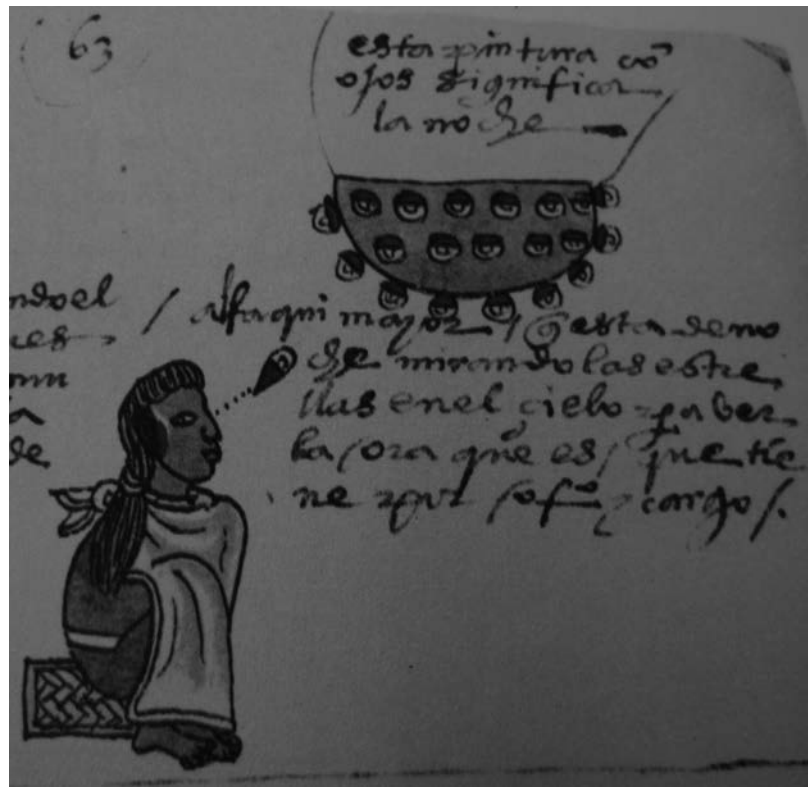 63
esta pintura cõ
ojos significa
la noche
ndo el
ces
mu
a
de
/ alfaqui mayor / q̃ esta de no
che mirando las estre
llas en el cielo pa ver
la ora que es / que tie
ne por / ofº y cargo /.